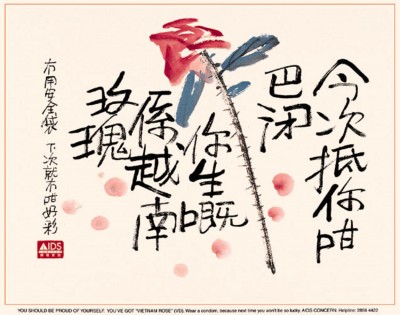 今次抵你咁
巴闭
你生嘅
係越南
玫瑰
冇用安全袋 下次就冇咁好彩
AIDS
YOU SHOULD BE PROUD OF YOURSELF. YOU'VE GOT "VIETNAM ROSE" (VD). Wear a condom, because next time you won't be so lucky. AIDS CONCERN. Helpline: 2898 4422